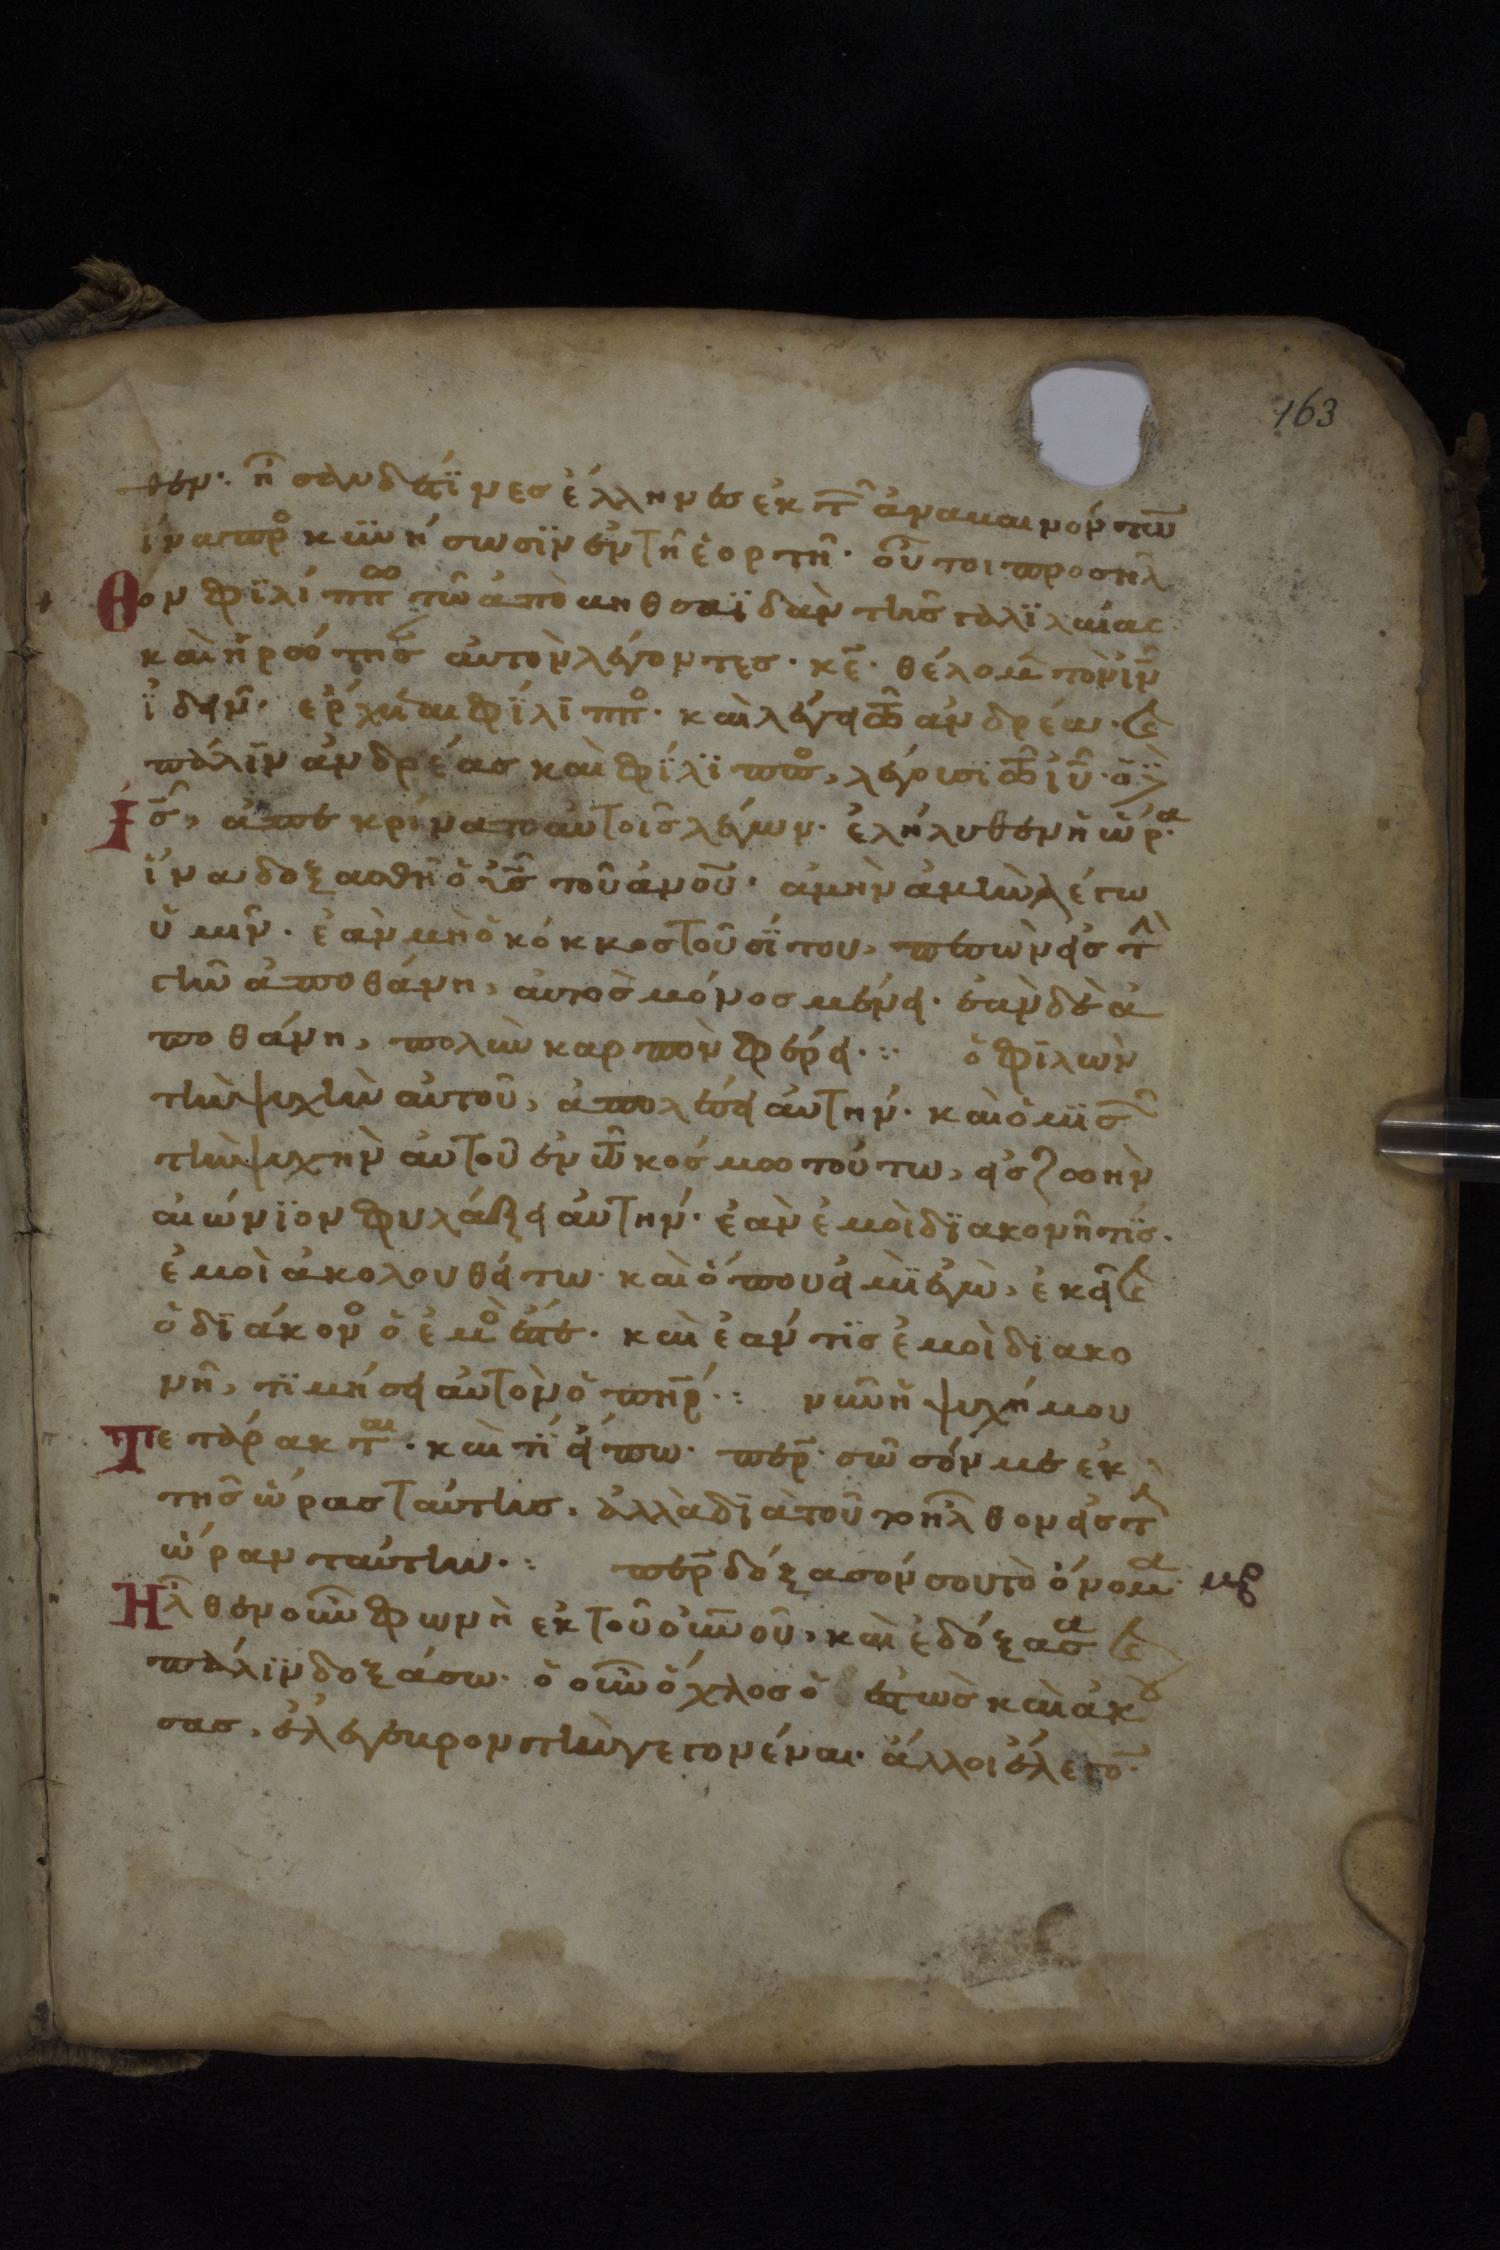 163
θεν· ἦσαν δέ τϊνες ἕλληνες ἐκ τῶν ἀναβαινόντων
ἵνα προσκϋνήσωσϊν ἐν τῇ ἑορτῇ· οὗτοι προσῆλ
θον φϊλίππω τῶ ἀπὸ βηθσαϊδὰν τῆς γαλϊλαίας
καὶ ἠρώτησαν αὐτὸν λέγοντες· κε̄· θέλομεν τὸν ἰν̄
ἰ̈δεῖν· ἔρχεται φΐλιππος· καὶ λέγει τῶ ἀνδρέα· καὶ
πάλϊν ἀνδρέας καὶ φΐλϊππος, λέγουσι τῶ ἰῦ· ὁ δὲ
ἰς̄, ἀπεκρίνατο αὐτοῖς λέγων· ἐλήλυθεν ἡ ὥρα·
ἵνα δοξασθῆ ὁ ὑς̄ τοῦ ἀνοῡ· ἀμὴν ἀμὴν λέγω
ὑμῖν· ἐὰν μὴ ὁ κόκκος τοῦ σΐτου, πεσὼν εἰς τὴν
γῆν ἀποθάνη, αὐτὸς μόνος μένει· ἐὰν δὲ ἀ
ποθάνη, πολὺν καρπὸν φέρει·: ὁ φϊλῶν
τὴν ψυχὴν αὐτοῦ, ἀπολέσει αὐτήν· καὶ ὁ μϊσῶν
τὴν ψυχὴν αὐτοῦ ἐν τῶ κόσμω τούτω, εἰς ζωὴν
αἰώνϊον φυλάξει αὐτήν· ἐὰν ἐμοὶ δϊακονῆ τϊς·
ἐμοὶ ἀκολουθείτω· καὶ ὅπου εἰμῒ ἐγὼ, ἐκεῖ καὶ
ὁ δϊάκονος ὁ ἐμὸς ἔσται· καὶ ἐάν τϊς ἐμοὶ δϊακο
νῆ, τϊμήσει αὐτὸν ὁ πηρ̄·: νῦν ἡ ψυχή μου
τετάρακται· καὶ τΐ εἴπω· περ̄· σῶσόν με ἐκ
τῆς ὥρας ταύτης· ἀλλὰ δϊὰ τοῦτο ἦλθον εἰς τὴν
ὥραν ταύτην·: περ̄ δόξασόν σου τὸ ὄνομα· μβ
ἦλθεν οὖν φωνὴ ἐκ τοῦ οὐνοῡ, καὶ ἐδόξασα καὶ
πάλϊν δοξάσω· ὁ οὖν ὄχλος ὁ ἑστὼς καὶ ἀκού
σας, ἔλεγε βροντὴν γεγονέναι· ἄλλοι ἔλεγον·